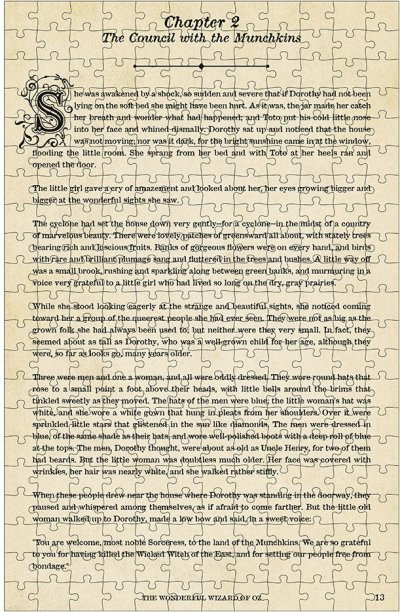 Chapter 2
The Council with the Munchkins
She was awakened by a shock, so sudden and severe that if Dorothy had not been
lying on the soft bed she might have been hurt. As it was, the jar made her catch
her breath and wonder what had happened; and Toto put his cold little nose
into her face and whined dismally. Dorothy sat up and noticed that the house
was not moving; nor was it dark, for the bright sunshine came in at the window,
flooding the little room. She sprang from her bed and with Toto at her heels ran and
opened the door.
The little girl gave a cry of amazement and looked about her, her eyes growing bigger and
bigger at the wonderful sights she saw.
The cyclone had set the house down very gently--for a cyclone--in the midst of a country
of marvelous beauty. There were lovely patches of greensward all about, with stately trees
bearing rich and luscious fruits. Banks of gorgeous flowers were on every hand, and birds
with rare and brilliant plumage sang and fluttered in the trees and bushes. A little way off
was a small brook, rushing and sparkling along between green banks, and murmuring in a
voice very grateful to a little girl who had lived so long on the dry, gray prairies.
While she stood looking eagerly at the strange and beautiful sights, she noticed coming
toward her a group of the queerest people she had ever seen. They were not as big as the
grown folk she had always been used to; but neither were they very small. In fact, they
seemed about as tall as Dorothy, who was a well-grown child for her age, although they
were, so far as looks go, many years older.
Three were men and one a woman, and all were oddly dressed. They wore round hats that
rose to a small point a foot above their heads, with little bells around the brims that
tinkled sweetly as they moved. The hats of the men were blue; the little woman's hat was
white, and she wore a white gown that hung in pleats from her shoulders. Over it were
sprinkled little stars that glistened in the sun like diamonds. The men were dressed in
blue, of the same shade as their hats, and wore well-polished boots with a deep roll of blue
at the tops. The men, Dorothy thought, were about as old as Uncle Henry, for two of them
had beards. But the little woman was doubtless much older. Her face was covered with
wrinkles, her hair was nearly white, and she walked rather stiffly.
When these people drew near the house where Dorothy was standing in the doorway, they
paused and whispered among themselves, as if afraid to come farther. But the little old
woman walked up to Dorothy, made a low bow and said, in a sweet voice:
"You are welcome, most noble Sorceress, to the land of the Munchkins. We are so grateful
to you for having killed the Wicked Witch of the East, and for setting our people free from
bondage."
THE WONDERFUL WIZARD OF OZ 13